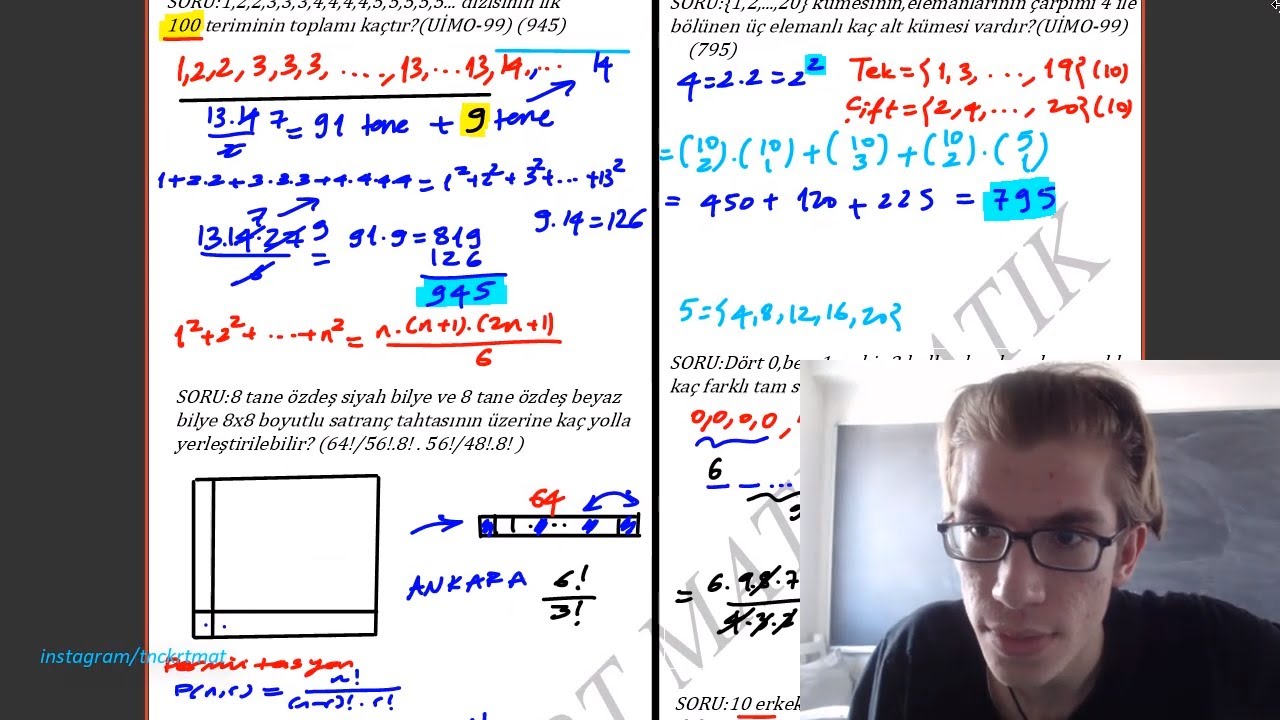 SORU:1,2,2,3,3,3,4,4,4,4,5,5,5,5,5... dizisinin ilk
100 teriminin toplamı kaçtır?(UİMO-99) (945)
1,2,2, 3,3,3, ...., 13,...13, 14,... 14
13.14 7 = 91 tane + 9 tane
2
1+2.2+3.3.3+4.4.4.4 = 1²+2²+3²+...+13²
9.14=126
7 9
13.14.27 = 91.9=819
6
126
945
1²+2²+...+n² = n.(n+1).(2n+1)
6
SORU:8 tane özdeş siyah bilye ve 8 tane özdeş beyaz
bilye 8x8 boyutlu satranç tahtasının üzerine kaç yolla
yerleştirilebilir? (64!/56!.8! . 56!/48!.8! )
64
ANKARA 6!
3!
instagram/tnckrtmat
Permütasyon
P(n,r) = n!
(n-r)!.r!
SORU:{1,2,...,20} kümesinin,elemanlarının çarpımı 4 ile
bölünen üç elemanlı kaç alt kümesi vardır?(UİMO-99)
(795)
4=2.2=2²
Tek={1,3,...,19}(10)
Çift={2,4,...,20}(10)
=(10 2).(10 1)+(10 3)+(10 2).(5 1)
= 450+ 120 + 225 = 795
5={4,8,12,16,20}
MATIK
SORU:Dört 0,be
kaç farklı tam s
0,0,0,0,
6
= 6.9.8.7
4.3.2
T MAT
SORU:10 erkek